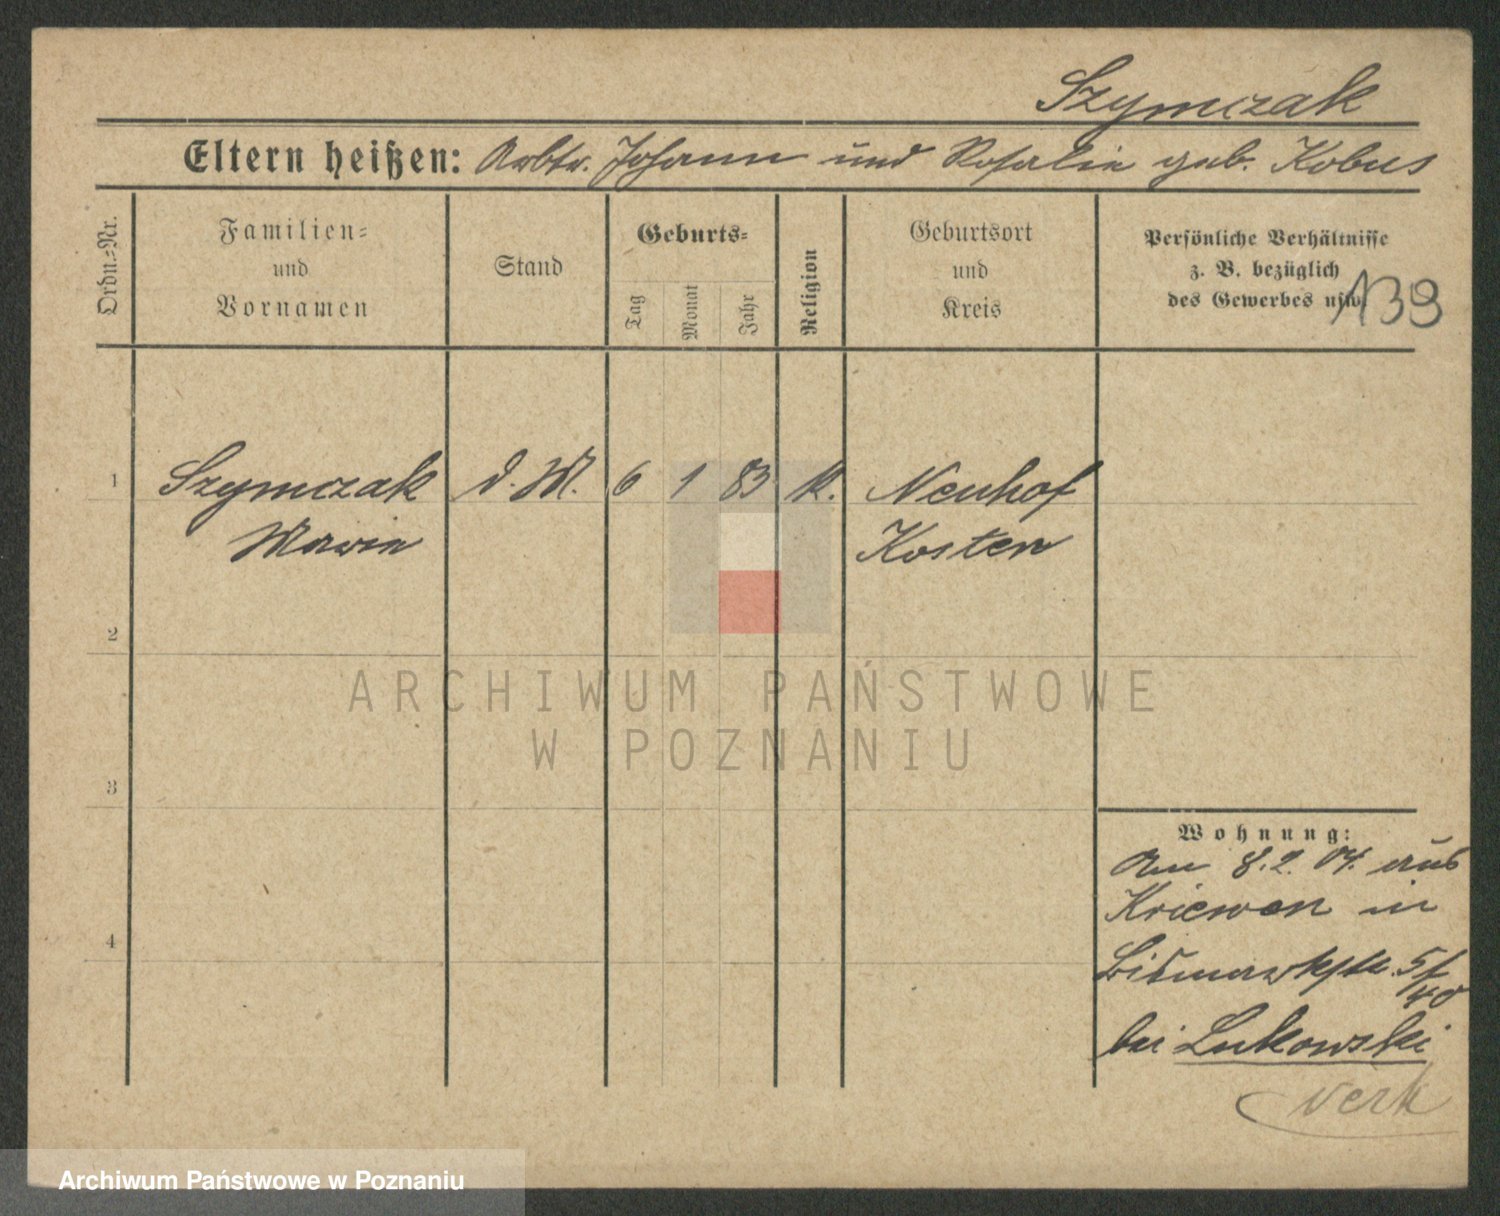 Szymczak
Eltern heißen: Arbtr. Johann und Rosalie geb. Kobus
Ordn.-Nr.
Familien-
und
Vornamen
Stand
Geburts-
Tag
Monat
Jahr
Religion
Geburtsort
und
Kreis
Persönliche Verhältnisse
z. B. bezüglich
des Gewerbes usw.
139
1 Szymczak d. M. 6 1 83 k. Neuhof
Marie Kosten
2
3
4
ARCHIWUM PAŃSTWOWE
W POZNANIU
Wohnung:
Am 8.2.04. aus
Kriewen in
Bismarkstr. 5/
40
bei Lukowski
Archiwum Państwowe w Poznaniu